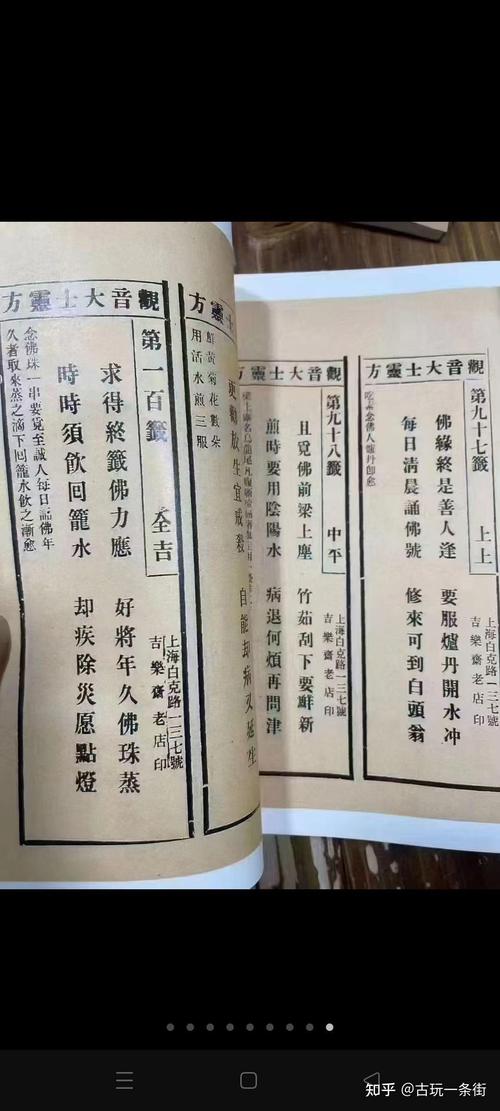 觀音大士靈方
第九十七籤 上上
上海白克路一三七號
吉樂齋老店印
佛緣終是善人逢 要服爐丹開水冲
每日清晨誦佛號 修來可到白頭翁
吃素念佛人爐丹卽愈
觀音大士靈方
第九十八籤 中平
上海白克路一三七號
吉樂齋老店印
且覓佛前梁上塵 竹茹刮下要鮮新
煎時要用陰陽水 病退何煩再問津
梁上塵名烏龍尾
士靈方
更勸放生宜戒殺 自能却病又延生
鮮黃菊花數朵
用活水煎三服
觀音大士靈方
第一百籤 全吉
上海白克路一三七號
吉樂齋老店印
求得終籤佛力應 好將年久佛珠蒸
時時須飲回籠水 却疾除災愿點燈
念佛珠一串要覓至誠人每日記佛年
久者取來蒸之滴下回籠水飲之漸愈
知乎 @古玩一条街